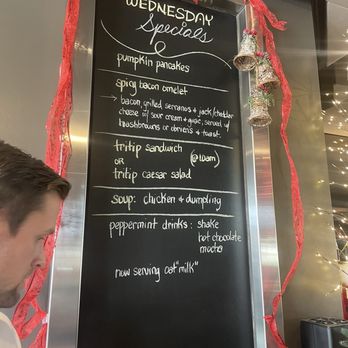 WEDNESDAY
Specials
pumpkin pancakes
spicy bacon omelet
→ bacon, grilled serranos & jack/cheddar
cheese w/ sour cream & guac, served w/
hashbrowns or obriens & toast.
tritip sandwich
OR (@10am)
tritip caesar salad
SOUP: chicken & dumpling
peppermint drinks: shake
hot chocolate
mocha
now serving oat "milk"